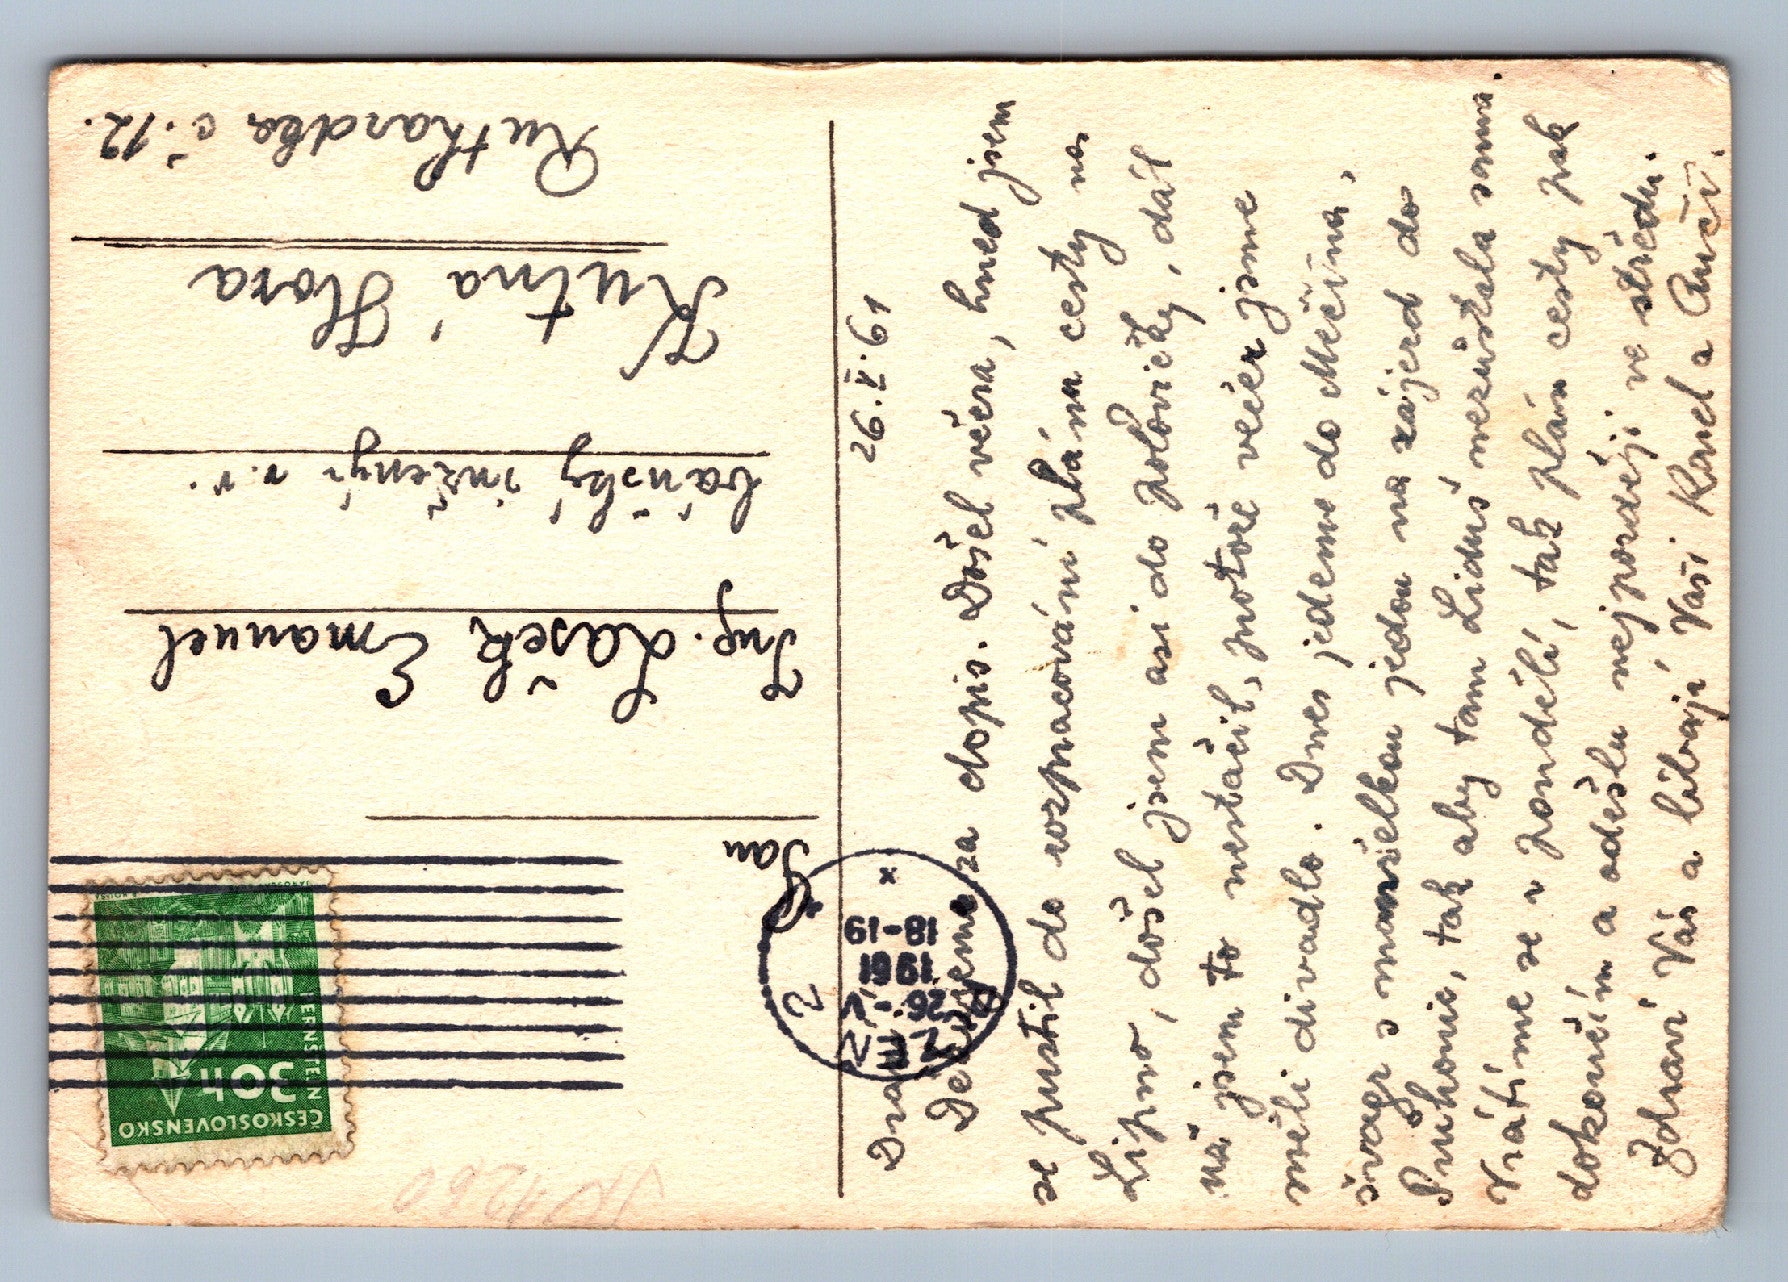 ČESKOSLOVENSKO
30h
PERNŠTEJN
PLZEŇ 2
26.-V.
1961
18-19
Pan
Ing. Lašek Emanuel
báňský inženýr v.v.
Kutná Hora
Ruthardka č.12.
26.V.61
Drazí,
Děkujeme za dopis. Došel včera, hned jsem
se pustil do rozpracování plánu cesty na
Lipno, došel jsem asi do polovičky, dál
už jsem to nestačil, protože večer jsme
měli divadlo. Dnes jedeme do Měčína,
švagr s manželkou jedou na zájezd do
Průhonic, tak aby tam Liduš nezůstala sama.
Vrátíme se v pondělí, tak plán cesty pak
dokončím a odešlu nejpozději ve středu.
Zdraví Vás a líbají Vaši Karel a Anči.